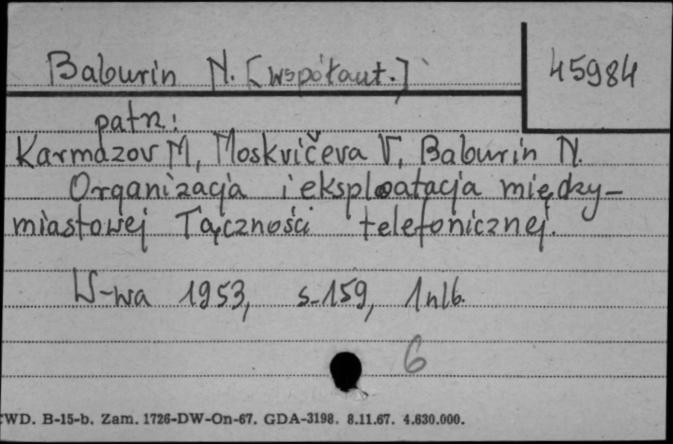 Baburin N. [współaut.]
45984
patrz:
Karmazov M, Moskvičeva V, Baburin N.
Organizacja i eksploatacja między-
miastowej Łączności telefonicznej.
W-wa 1953, s-159, 1nlb.
6
CWD. B-15-b. Zam. 1726-DW-On-67. GDA-3198. 8.11.67. 4.630.000.